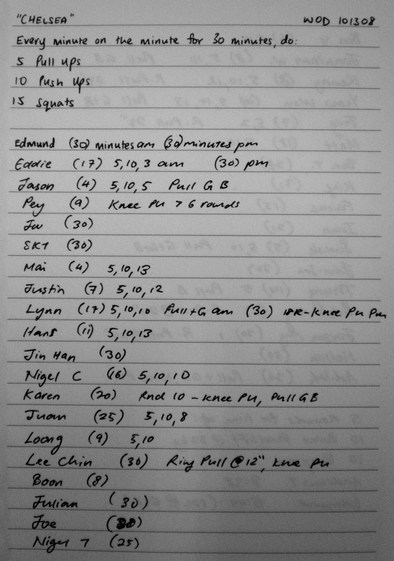 "CHELSEA" WOD 101308
Every minute on the minute for 30 minutes, do:
5 Pull ups
10 Push ups
15 Squats
Edmund (30) minutes am (30) minutes pm
Eddie (17) 5,10,3 am (30) pm
Jason (4) 5,10,5 Pull G B
Pey (9) Knee Pu > 6 rounds
Jw (30)
SKT (30)
Mai (4) 5,10,13
Justin (7) 5,10,12
Lynn (17) 5,10,10 Pull+G am (30) Knee Pu pm
Hans (11) 5,10,13
Jin Han (30)
Nigel C (16) 5,10,10
Karen (20) Rnd 10 - Knee Pu, Pull G B
Juan (25) 5,10,8
Loong (9) 5,10
Lee Chin (30) Ring Pull @ 12", Knee Pu
Boon (8)
Julian (30)
Joe (30)
Nigel T (25)